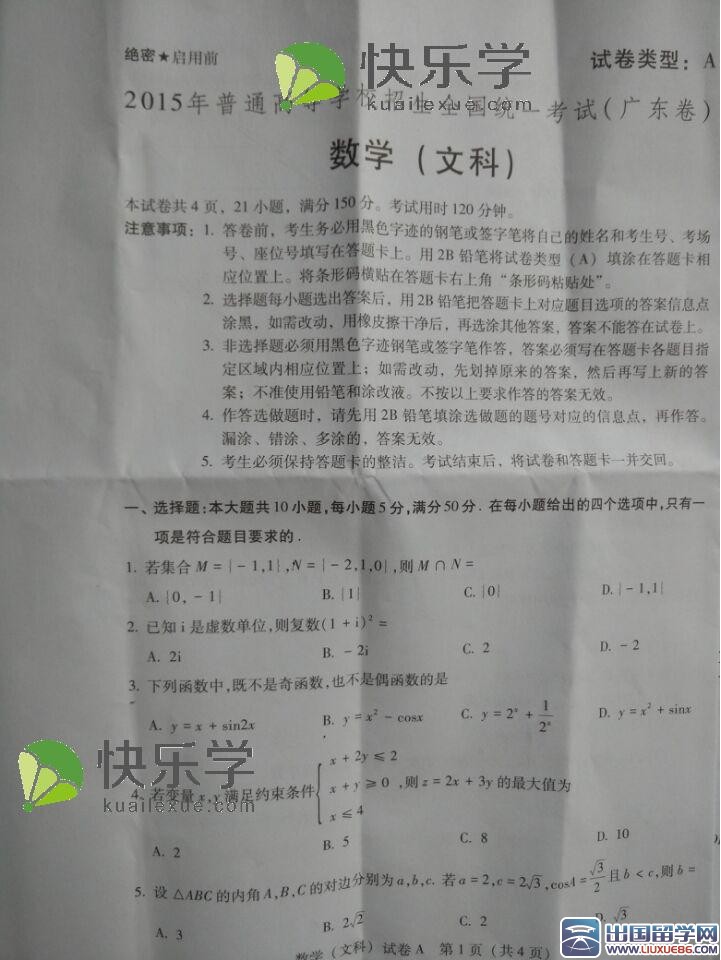 绝密★启用前
试卷类型：A
快乐学
kuailexue.com
2015年普通高等学校招生全国统一考试（广东卷）
数学（文科）
本试卷共4页，21小题，满分150分。考试用时120分钟。
注意事项：1. 答卷前，考生务必用黑色字迹的钢笔或签字笔将自己的姓名和考生号、考场
号、座位号填写在答题卡上。用2B铅笔将试卷类型（A）填涂在答题卡相
应位置上。将条形码横贴在答题卡右上角“条形码粘贴处”。
2. 选择题每小题选出答案后，用2B铅笔把答题卡上对应题目选项的答案信息点
涂黑，如需改动，用橡皮擦干净后，再选涂其他答案，答案不能答在试卷上。
3. 非选择题必须用黑色字迹钢笔或签字笔作答，答案必须写在答题卡各题目指
定区域内相应位置上；如需改动，先划掉原来的答案，然后再写上新的答
案；不准使用铅笔和涂改液。不按以上要求作答的答案无效。
4. 作答选做题时，请先用2B铅笔填涂选做题的题号对应的信息点，再作答。
漏涂、错涂、多涂的，答案无效。
5. 考生必须保持答题卡的整洁。考试结束后，将试卷和答题卡一并交回。
一、选择题：本大题共10小题，每小题5分，满分50分．在每小题给出的四个选项中，只有一
项是符合题目要求的．
1. 若集合 M = {-1,1}, N = {-2,1,0}, 则 M ∩ N =
A. {0, -1} B. {1} C. {0} D. {-1,1}
2. 已知 i 是虚数单位，则复数(1 + i)² =
A. 2i B. -2i C. 2 D. -2
3. 下列函数中，既不是奇函数，也不是偶函数的是
A. y = x + sin2x B. y = x² - cosx C. y = 2ˣ + 1/2ˣ D. y = x² + sinx
快乐学
kuailexue.com
4. 若变量 x,y 满足约束条件 { x + 2y ≤ 2 x + y ≥ 0 x ≤ 4 ，则 z = 2x + 3y 的最大值为
A. 2 B. 5 C. 8 D. 10
5. 设 △ABC 的内角 A,B,C 的对边分别为 a,b,c. 若 a = 2, c = 2√3, cosA = √3/2 且 b < c, 则 b =
A. 3 B. 2√2 C. 2 D. √3
数学（文科）试卷A 第1页（共4页）
出国留学网
www.liuxue86.com